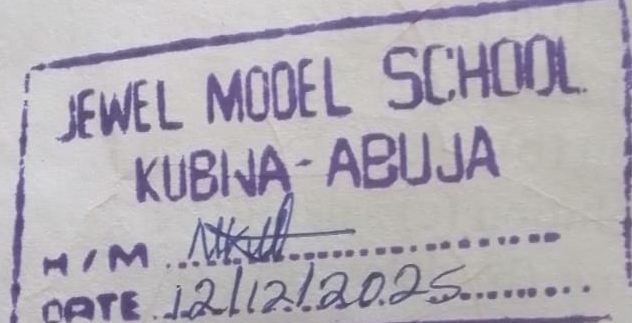 JEWEL MODEL SCHOOL
KUBWA-ABUJA
H/M
DATE 12/12/2025